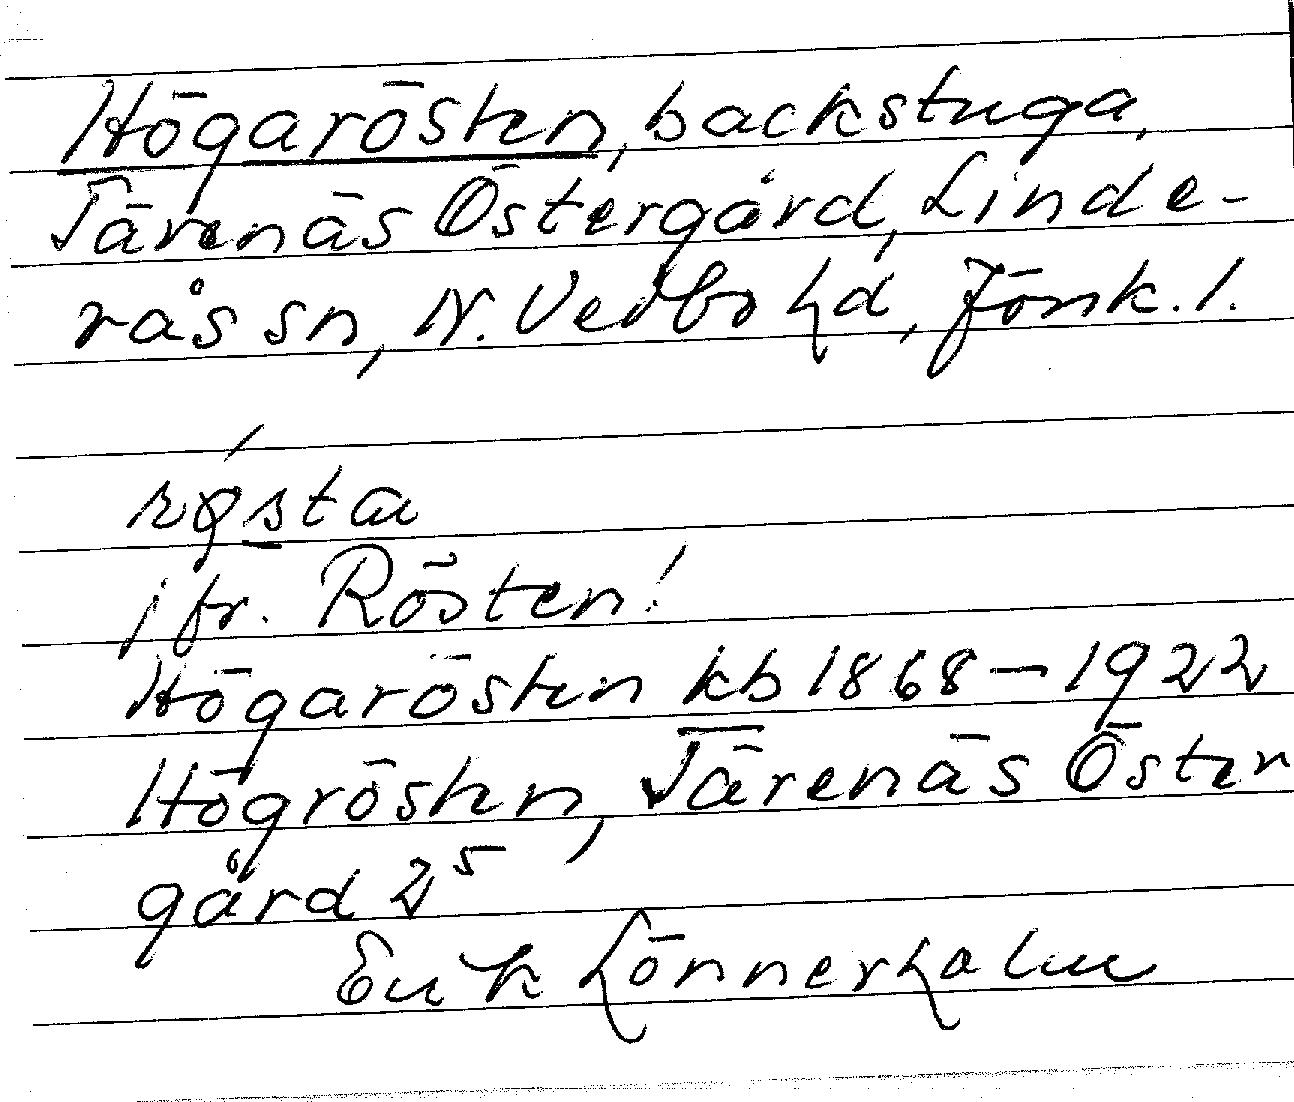 Högarösten, backstuga,
Tärenäs Östergård, Linde-
rås sn, N. Vedbo hd, Jönk. l.
jfr. Rösten!
Högarösten kb 1868-1922
Högrösten, Tärenäs Öster
gård 2⁵
Erik Lönnerholm